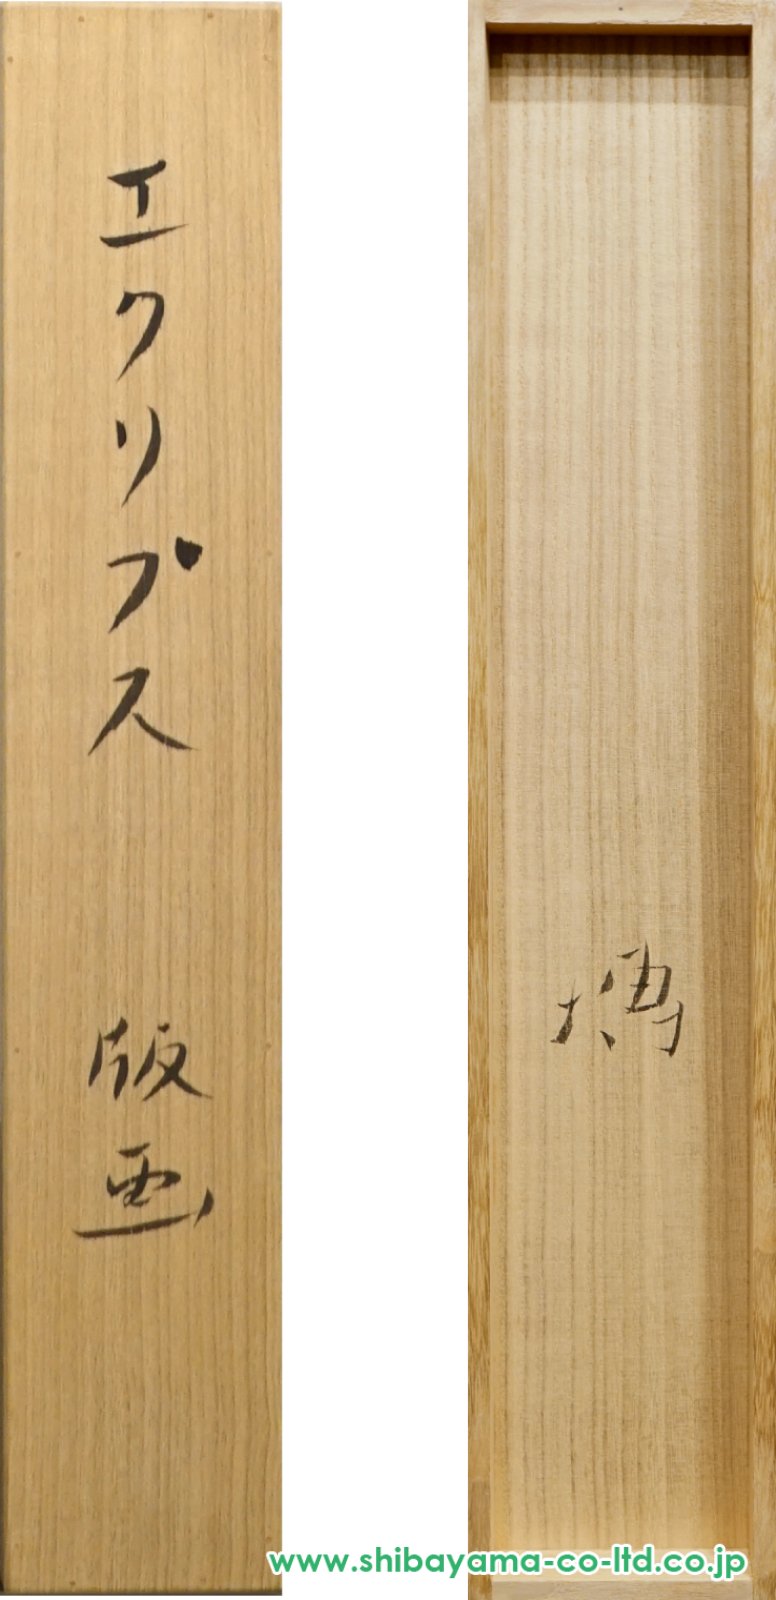 エクリプス 版画
www.shibayama-co-ltd.co.jp